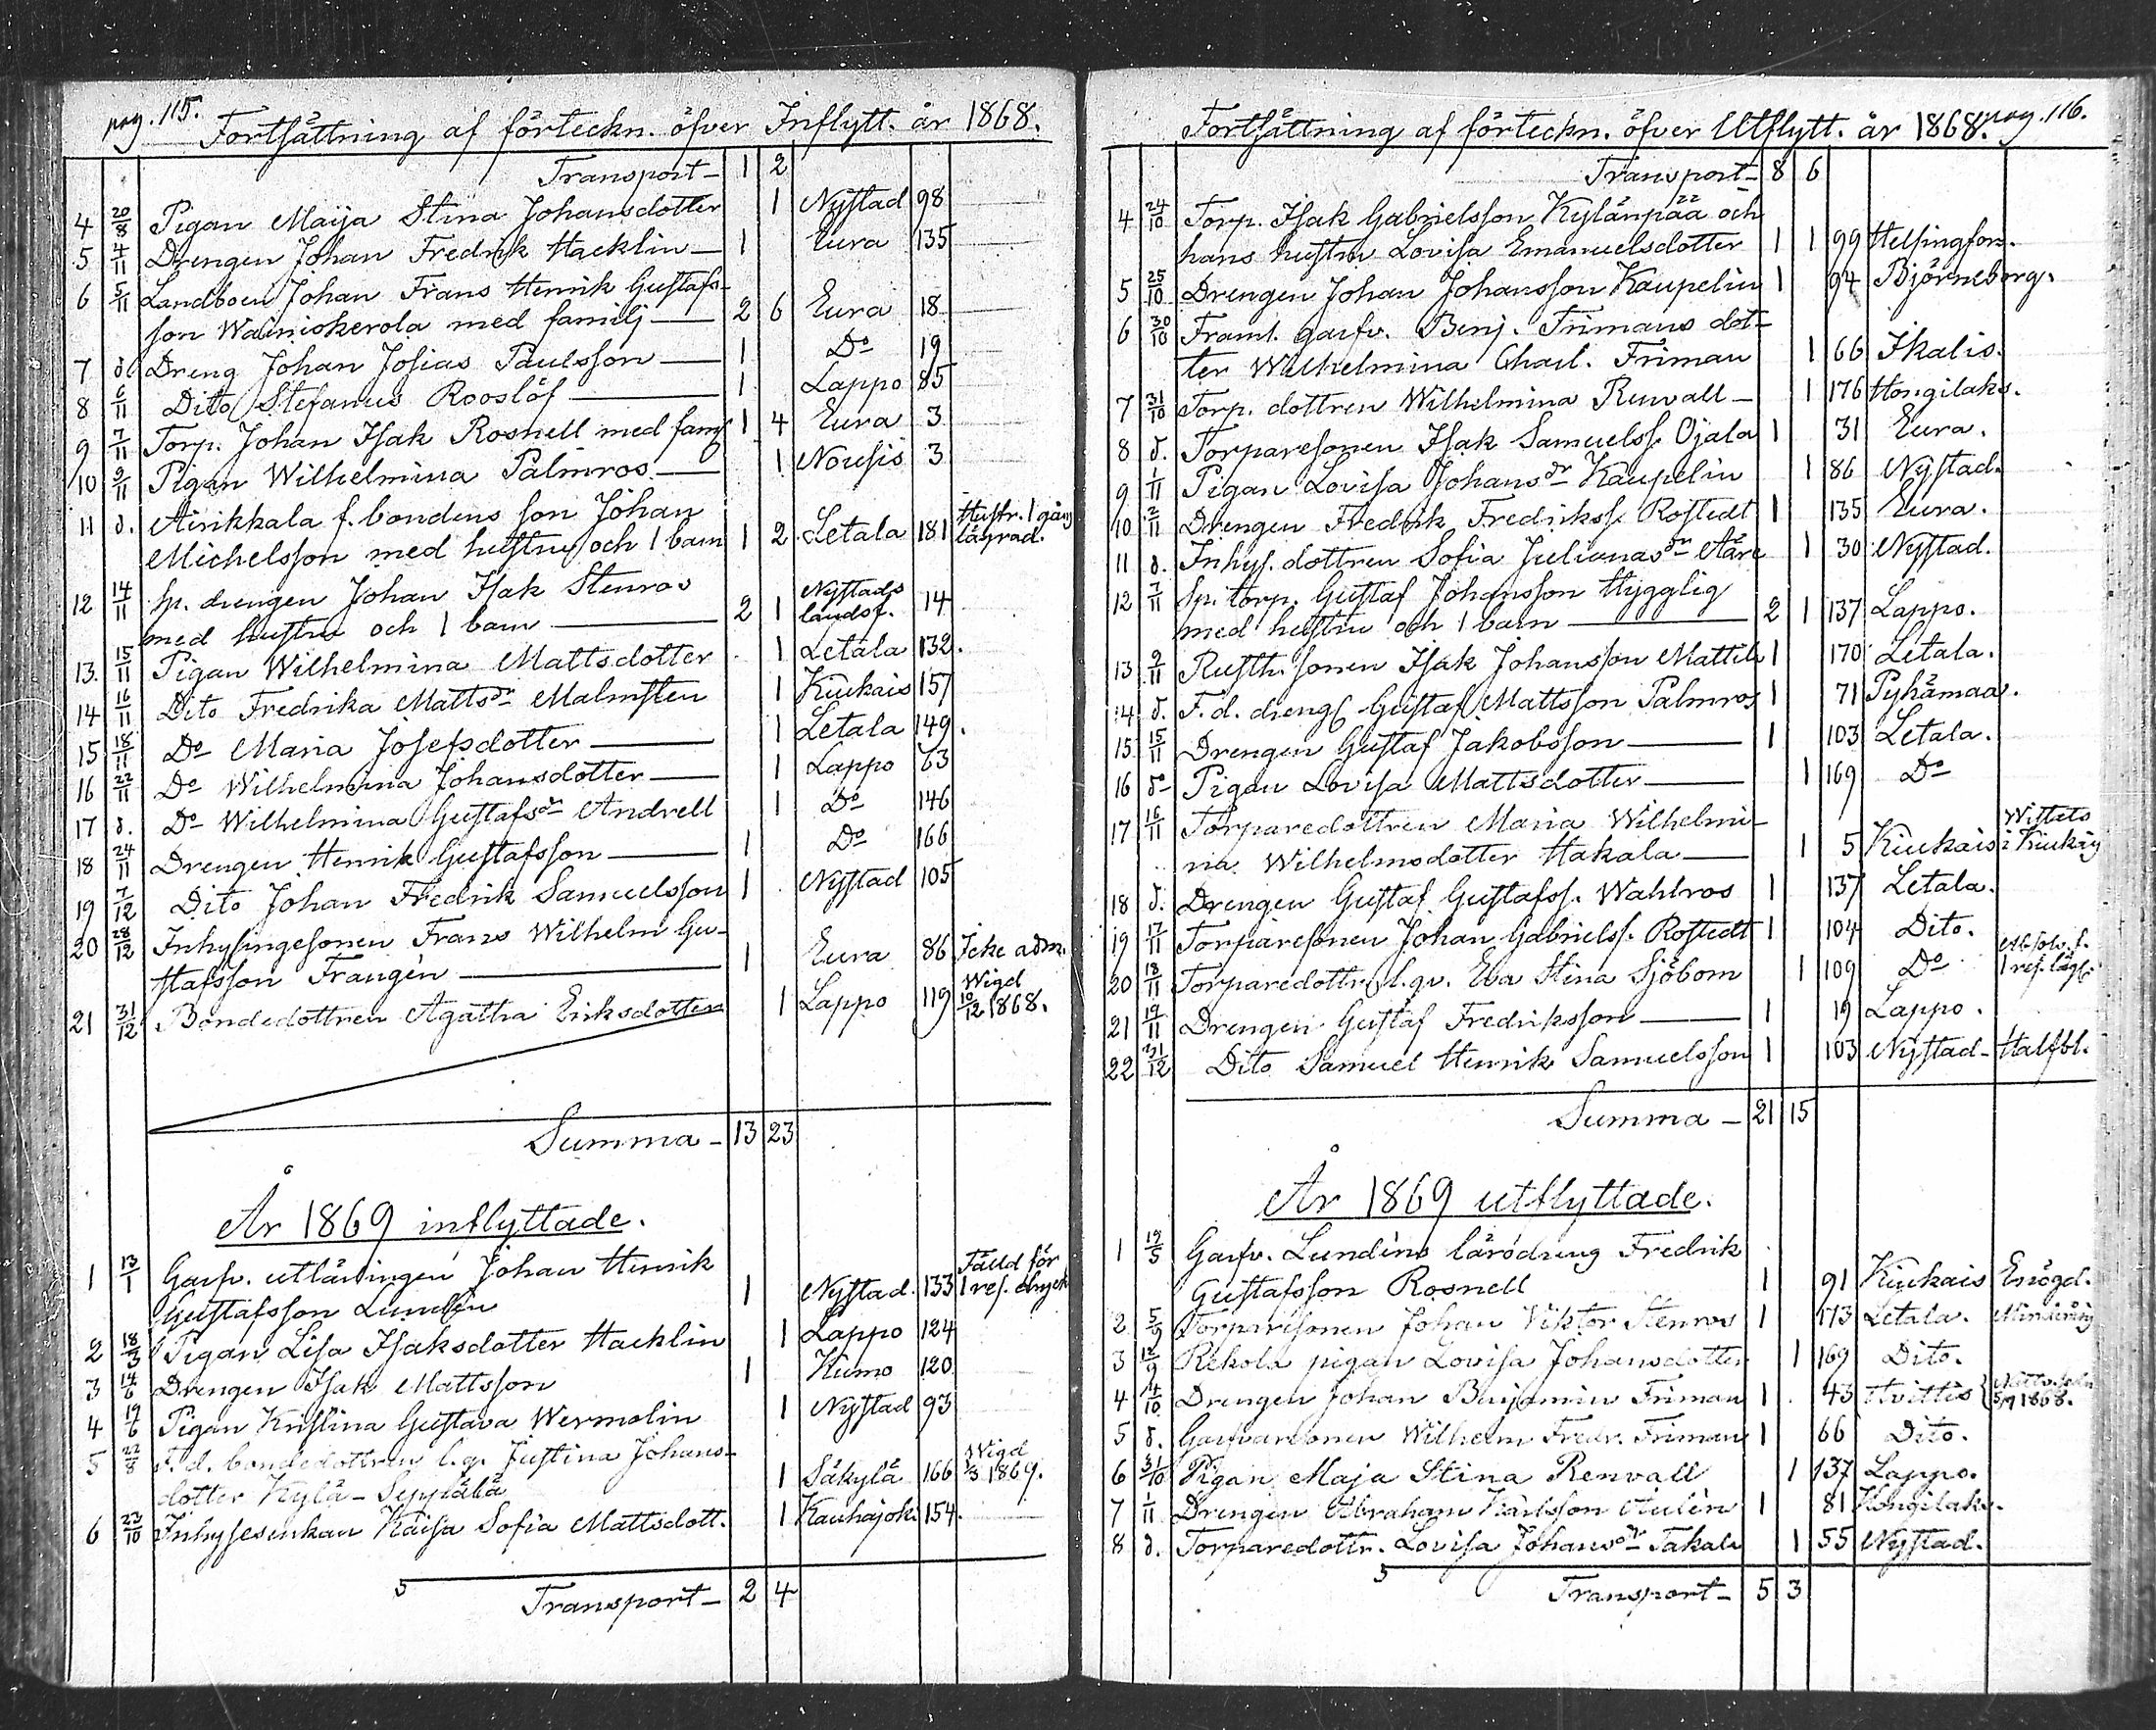 pag. 115.
Fortsättning af förteckn. öfver Inflytt. år 1868.
Transport – 1 2
4 20/8 Pigan Maija Stina Johansdotter 1 Nystad 98
5 4/11 Drengen Johan Fredrik Hacklin – 1 Eura 135
6 5/11 Landboen Johan Frans Henrik Gustafs-
son Wainiokerola med familj – 2 6 Eura 18
7 d. Dreng Johan Josias Paulsson – 1 Do 19
8 6/11 Dito Stefanus Rooslöf – 1 Lappo 85
9 7/11 Torp. Johan Isak Rosnell med famj 1 4 Eura 3
10 9/11 Pigan Wilhelmina Palmros – 1 Nousis 3
11 d. Airikkala f. bondens son Johan
Michelsson med hustru och 1 barn 1 2 Letala 181 Hustr. 1 gång lägrad.
12 14/11 Sp. drengen Johan Isak Stenros
med hustru och 1 barn – 2 1 Nystads landsf. 14
13. 15/11 Pigan Wilhelmina Mattsdotter 1 Letala 132.
14 16/11 Dito Fredrika Mattsdr Malmsten 1 Kiukais 157
15 18/11 Do Maria Josefsdotter – 1 Letala 149.
16 22/11 Do Wilhelmina Johansdotter – 1 Lappo 63
17 d. Do Wilhelmina Gustafsdr Andrell 1 Do 146
18 24/11 Drengen Henrik Gustafsson – 1 Do 166
19 7/12 Dito Johan Fredrik Samuelsson 1 Nystad 105
20 28/12 Inhysingesonen Frans Wilhelm Gu-
stafsson Frangén – 1 Eura 86 Icke adm.
21 31/12 Bondedottren Agatha Eriksdotter 1 Lappo 119 Wigd 10/12 1868.
Summa – 13 23
År 1869 inflyttade.
1 13/1 Garfv. utlärlingen Johan Henrik
Gustafsson Lundén 1 Nystad. 133 Fälld för 1 res. dryck
2 18/3 Pigan Lisa Isaksdotter Hacklin 1 Lappo 124
3 14/6 Drengen Isak Mattsson 1 Kumo 120
4 19/6 Pigan Kristina Gustava Wermolin 1 Nystad 93
5 22/8 F. d. bondedottren l. q. Justina Johans-
dotter Kylä-Seppälä 1 Säkylä 166 Wigd 1/3 1869.
6 23/10 Inhysesenkan Kaisa Sofia Mattsdott. 1 Kauhajoki 154.
Transport – 2 4
Fortsättning af förteckn. öfver Utflytt. år 1868. pag. 116.
Transport – 8 6
4 24/10 Torp. Isak Gabrielsson Kylänpää och
hans hustru Lovisa Emanuelsdotter 1 1 99 Helsingfors.
5 25/10 Drengen Johan Johansson Kaupelin 1 94 Björneborg.
6 30/10 Framl. garfv. Benj. Frimans dot-
ter Wilhelmina Charl. Friman 1 66 Ikalis.
7 31/10 Torp. dottren Wilhelmina Renvall – 1 176 Hongilaks.
8 d. Torparesonen Isak Samuelss. Ojala 1 31 Eura.
9 1/11 Pigan Lovisa Johansdr Kaupelin 1 86 Nystad.
10 2/11 Drengen Fredrik Fredrikss. Rostedt 1 135 Eura.
11 d. Inhys. dottren Sofia Julianasdr Aäre 1 30 Nystad.
12 7/11 Sp. torp. Gustaf Johansson Hygglig
med hustru och 1 barn – 2 1 137 Lappo.
13 9/11 Rusth. sonen Isak Johansson Mattila 1 170 Letala.
14 d. F. d. dreng Gustaf Mattsson Palmros 1 71 Pyhämaa.
15 15/11 Drengen Gustaf Jakobsson – 1 103 Letala.
16 do Pigan Lovisa Mattsdotter – 1 169 Do
17 16/11 Torparedottren Maria Wilhelmi-
na Wilhelmsdotter Hakala – 1 5 Kiukais i Kiukais
18 d. Drengen Gustaf Gustafss. Wahlros 1 137 Letala.
19 17/11 Torparesonen Johan Gabrielss. Rostedt 1 104 Dito.
20 18/11 Torparedottr. l. qv. Eva Stina Sjöbom 1 109 Do Absolv. f. 1 res. lägh.
21 19/11 Drengen Gustaf Fredriksson – 1 19 Lappo.
22 31/12 Dito Samuel Henrik Samuelsson 1 103 Nystad – Halfbl.
Summa – 21 15
År 1869 utflyttade.
1 19/5 Garfv. Lundéns lärodreng Fredrik
Gustafsson Rosnell 1 91 Kiukais Enögd.
2 5/9 Torparesonen Johan Viktor Stenros 1 173 Letala.
3 12/9 Rekola pigan Lovisa Johansdotter 1 169 Dito.
4 14/10 Drengen Johan Benjamin Friman 1 43 Hvittis 1868.
5 d. Garfvaresonen Wilhelm Fredr. Friman 1 66 Dito.
6 31/10 Pigan Maja Stina Renvall 1 137 Lappo.
7 1/11 Drengen Abraham Karlsson Aulén 1 81 Hongilaks.
8 d. Torparedottr. Lovisa Johansdr Takala 1 55 Nystad.
Transport – 5 3